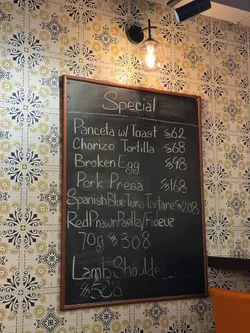 Special
Panceta w/ Toast $62
Chorizo Tortilla $68
Broken Egg $98
Pork Presa $168
Spanish Blue Tuna Tartare $208
Red Prawn Paella/Fideue
70g $308
Lamb Shoulde
$528